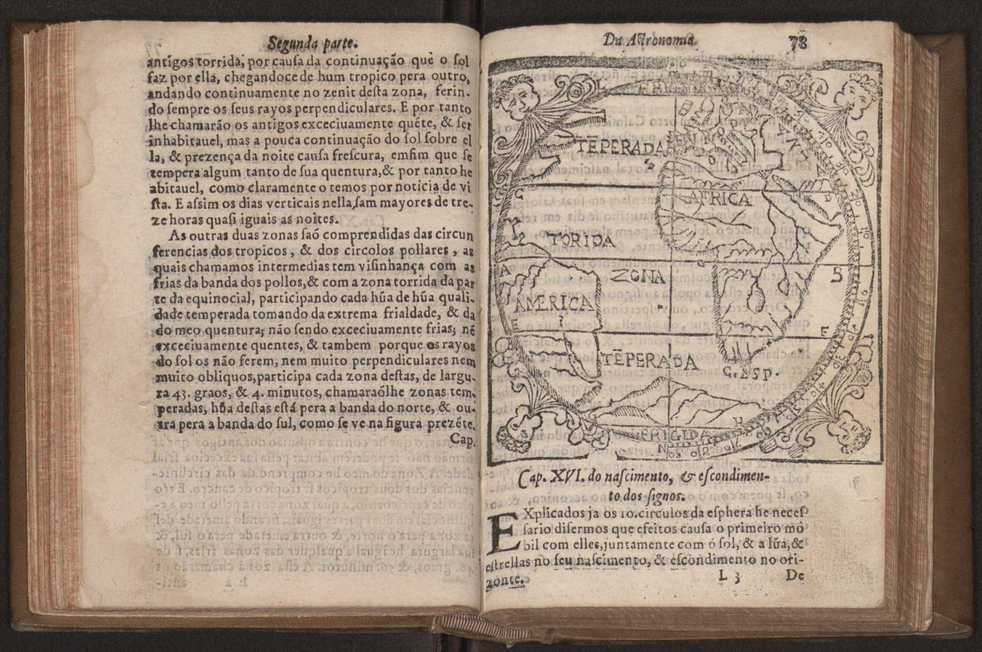 Segunda parte.
antigos torrida, por causa da continuação que o sol
faz por ella, chegandoce de hum tropico pera outro,
andando continuamente no zenit desta zona, ferin-
do sempre os seus rayos perpendiculares. E por tanto
lhe chamarão os antigos exceciuamente quẽte, & ser
inhabitauel, mas a pouca continuação do sol sobre el
la, & prezença da noite causa frescura, emsim que se
tempera algum tanto de sua quentura, & por tanto he
abitauel, como claramente o temos por noticia de vi
sta. E assim os dias verticais nella, sam mayores de tre-
ze horas quasi iguais as noites.
As outras duas zonas saõ comprendidas das circun
ferencias dos tropicos, & dos circolos pollares, as
quais chamamos intermedias tem visinhança com as
frias da banda dos pollos, & com a zona torrida da par
te da equinocial, participando cada hũa de hũa quali-
dade temperada tomando da extrema frialdade, & da
do meo quentura; não sendo exceciuamente frias; nẽ
exceciuamente quentes, & tambem porque os rayos
do sol os não ferem, nem muito perpendiculares nem
muito obliquos, participa cada zona destas, de largu-
ra 43. graos, & 4. minutos, chamaraõlhe zonas tem-
peradas, hũa destas está pera a banda do norte, & ou-
tra pera a banda do sul, como se ve na figura prezẽte.
Cap.
Da Astronomia.
78
TẼPERADA
AFRICA
TORIDA
ZONA
AMERICA
TẼPERADA
C.ESP.
FRIGID
Cap. XVI. do nascimento, & escondimen-
to dos signos.
EXplicados ja os 10. circulos da esphera he neces-
sario disermos que efeitos causa o primeiro mo
bil com elles, juntamente com ó sol, & a lũa, &
estrellas no seu nascimento, & escondimento no ori-
zonte.
L 3
De